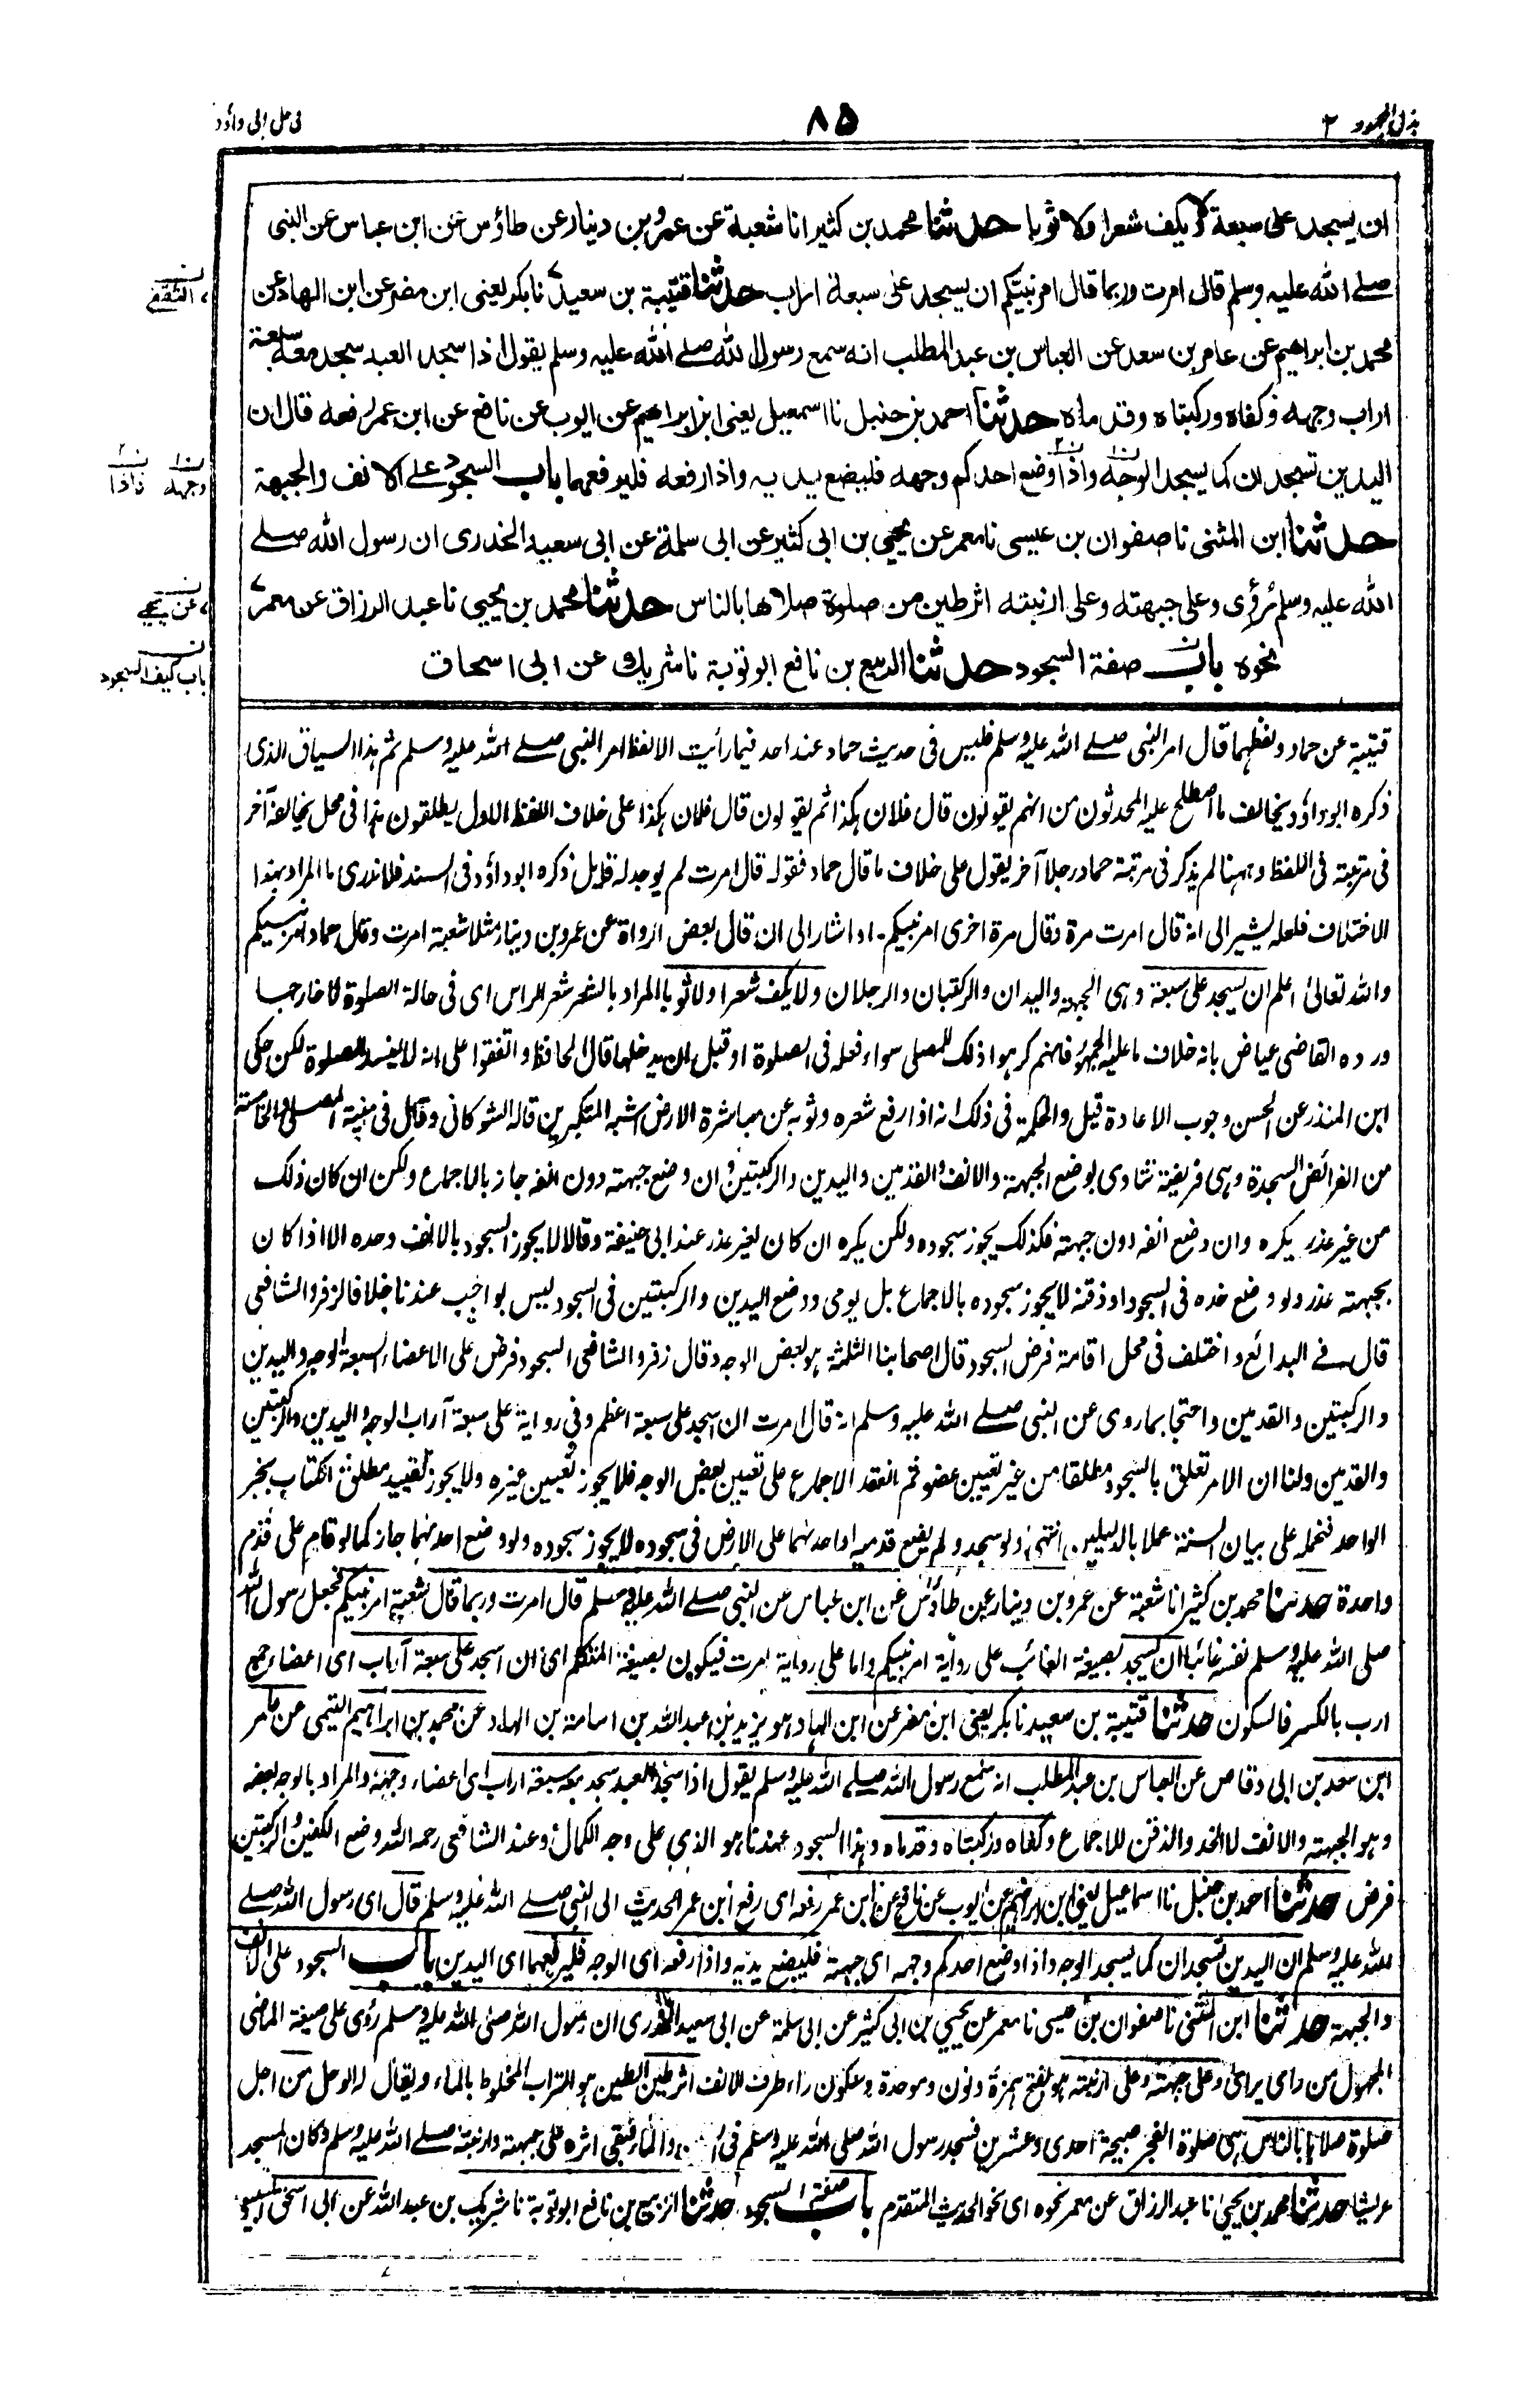 بذل المجهود ٢
٨٥
فى حل ابى داؤد
ان يسجد على سبعة لا يكف شعرا ولا ثوبا حدثنا محمد بن كثير انا شعبة عن عمرو بن دينار عن طاؤس عن ابن عباس عن النبى
صلے الله عليه وسلم قال امرت وربما قال امر نبيكم ان يسجد على سبعة اراب حدثنا قتيبة بن سعيد نا بكر يعنى ابن مضر عن ابن الهاد عن
محمد بن ابراهيم عن عامر بن سعد عن العباس بن عبد المطلب انه سمع رسول الله صلے الله عليه وسلم يقول اذا سجد العبد سجد معه سبعة
اراب وجهه وكفاه وركبتاه وقدماه حدثنا احمد بن حنبل نا اسمعيل يعنى ابن ابراهيم عن ايوب عن نافع عن ابن عمر رفعه قال ان
اليدين تسجدان كما يسجد الوجه واذا وضع احدكم وجهه فليضع يديه واذا رفعه فليرفعهما باب السجود علے الانف والجبهة
حدثنا ابن المثنى نا صفوان بن عيسى نا معمر عن يحيى بن ابى كثير عن ابى سلمة عن ابى سعيد الخدرى ان رسول الله صلے
الله عليه وسلم رُؤى وعلى جبهته وعلى ارنبته اثر طين من صلوة صلاها بالناس حدثنا محمد بن يحيى نا عبد الرزاق عن معمر
نحوه باب صفة السجود حدثنا الربيع بن نافع ابو توبة نا شريك عن ابى اسحاق
الثقفى
ن١ وجهه ن٢ فاذا
عن يحيے
باب كيف السجود
قتيبة عن حماد ولفظهما قال امر النبى صلے الله عليه وسلم فليس فى حديث حماد عند احد فيما رأيت الا لفظ امر النبى صلے الله عليه وسلم ثم هذا السياق الذى
ذكره ابو داؤد يخالف ما اصطلح عليه المحدثون من انهم يقولون قال فلان هكذا ثم يقولون قال فلان هكذا على خلاف اللفظ الاول يطلقون هذا فى محل يخالفه آخر
فى مرتبته فى اللفظ وههنا لم يذكر فى مرتبة حماد رجلا آخر يقول على خلاف ما قال حماد فقوله قال امرت لم يوجد له قائل ذكره ابو داؤد فى السند فلا ندرى ما المراد بهذا
الاختلاف فلعله يشير الى انه قال امرت مرة وقال مرة اخرى امر نبيكم - او اشار الى ان قال بعض الرواة عن عمرو بن دينار مثلا شعبة امرت وقال حماد امر نبيكم
والله تعالىٰ اعلم ان يسجد على سبعة وهى الجبهة واليدان والركبتان والرجلان ولا يكف شعرا ولا ثوبا المراد بالشعر شعر الراس اى فى حالة الصلوة لا خارجها
ورده القاضى عياض بانه خلاف ما عليه الجمهور فانهم كرهوا ذلك للمصلى سواء فعله فى الصلوة او قبل ان يدخلها قال الحافظ واتفقوا على انه لا يفسد الصلوة لكن حكى
ابن المنذر عن الحسن وجوب الاعادة قيل والحكمة فى ذلك انه اذا رفع شعره وثوبه عن مباشرة الارض اشبه المتكبرين قاله الشوكانى وقال فى منية المصلى والخامسة
من الفرائض السجدة وهى فريضة تتادى بوضع الجبهة والانف والقدمين واليدين والركبتين وان وضع جبهته دون انفه جاز بالاجماع ولكن ان كان ذلك
من غير عذر يكره وان وضع انفه دون جبهته فكذلك يجوز سجوده ولكن يكره ان كان لغير عذر عند ابى حنيفة وقالا لا يجوز السجود بالانف وحده الا اذا كان
بجبهته عذر ولو وضع خده فى السجود او ذقنه لا يجوز سجوده بالاجماع بل يومى ووضع اليدين والركبتين فى السجود ليس بواجب عندنا خلافا لزفر والشافعى
قال فے البدائع واختلف فى محل اقامة فرض السجود قال اصحابنا الثلثة هو بعض الوجه وقال زفر والشافعى السجود فرض على الاعضاء السبعة الوجه واليدين
والركبتين والقدمين واحتجا بما روى عن النبى صلے الله عليه وسلم انه قال امرت ان اسجد على سبعة اعظم وفى رواية على سبعة آراب الوجه واليدين والركبتين
والقدمين ولنا ان الامر تعلق بالسجود مطلقا من غير تعيين عضو ثم انعقد الاجماع على تعيين بعض الوجه فلا يجوز تعيين غيره ولا يجوز تقييد مطلق الكتاب بخبر
الواحد فنحمله على بيان السنة عملا بالدليلين انتهىٰ ولو سجد ولم يضع قدميه او احدهما على الارض فى سجوده لا يجوز سجوده ولو وضع احدهما جاز كما لو قام على قدم
واحدة حدثنا محمد بن كثير انا شعبة عن عمرو بن دينار عن طاؤس عن ابن عباس عن النبى صلے الله عليه وسلم قال امرت وربما قال شعبة امر نبيكم فجعل رسول الله
صلى الله عليه وسلم نفسه غائبا ان يسجد بصيغة الغائب على رواية امر نبيكم واما على رواية امرت فيكون بصيغة المتكلم اى ان اسجد على سبعة آراب اى اعضاء جمع
ارب بالكسر فالسكون حدثنا قتيبة بن سعيد نا بكر يعنى ابن مضر عن ابن الهاد هو يزيد بن عبد الله بن اسامة بن الهاد عن محمد بن ابراهيم التيمى عن عامر
ابن سعد بن ابى وقاص عن العباس بن عبد المطلب انه سمع رسول الله صلے الله عليه وسلم يقول اذا سجد العبد سجد معه سبعة اراب اى اعضاء وجهه والمراد بالوجه بعضه
وهو الجبهة والانف لا الخد والذقن للاجماع وكفاه وركبتاه وقدماه وهذا السجود عندنا هو الذى على وجه الكمال وعند الشافعى رحمه الله وضع الكفين والركبتين
فرض حدثنا احمد بن حنبل نا اسماعيل يعنى ابن ابراهيم عن ايوب عن نافع عن ابن عمر رفعه اى رفع ابن عمر الحديث الى النبى صلے الله عليه وسلم قال اى رسول الله صلے
الله عليه وسلم ان اليدين تسجدان كما يسجد الوجه واذا وضع احدكم وجهه اى جبهته فليضع يديه واذا رفعه اى الوجه فليرفعهما اى اليدين باب السجود على الانف
والجبهة حدثنا ابن المثنى نا صفوان بن عيسى نا معمر عن يحيى بن ابى كثير عن ابى سلمة عن ابى سعيد الخدرى ان رسول الله صلى الله عليه وسلم رؤى على صيغة الماضى
المجهول من راى يرائى وعلى جبهته وعلى ارنبته هو بفتح همزة ونون وموحدة وسكون راء طرف الانف اثر طين الطين هو التراب المخلوط بالماء ويقال له الوحل من اجل
صلوة صلاها بالناس هى صلوة الفجر صبيحة احدى وعشرين فسجد رسول الله صلى الله عليه وسلم فى والماء فبقى اثره على جبهته وارنبته صلے الله عليه وسلم وكان المسجد
عريشا حدثنا محمد بن يحيىٰ نا عبد الرزاق عن معمر نحوه اى نحو الحديث المتقدم باب صفة السجود حدثنا الربيع بن نافع ابو توبة نا شريك بن عبد الله عن ابى اسحٰق السبيعى